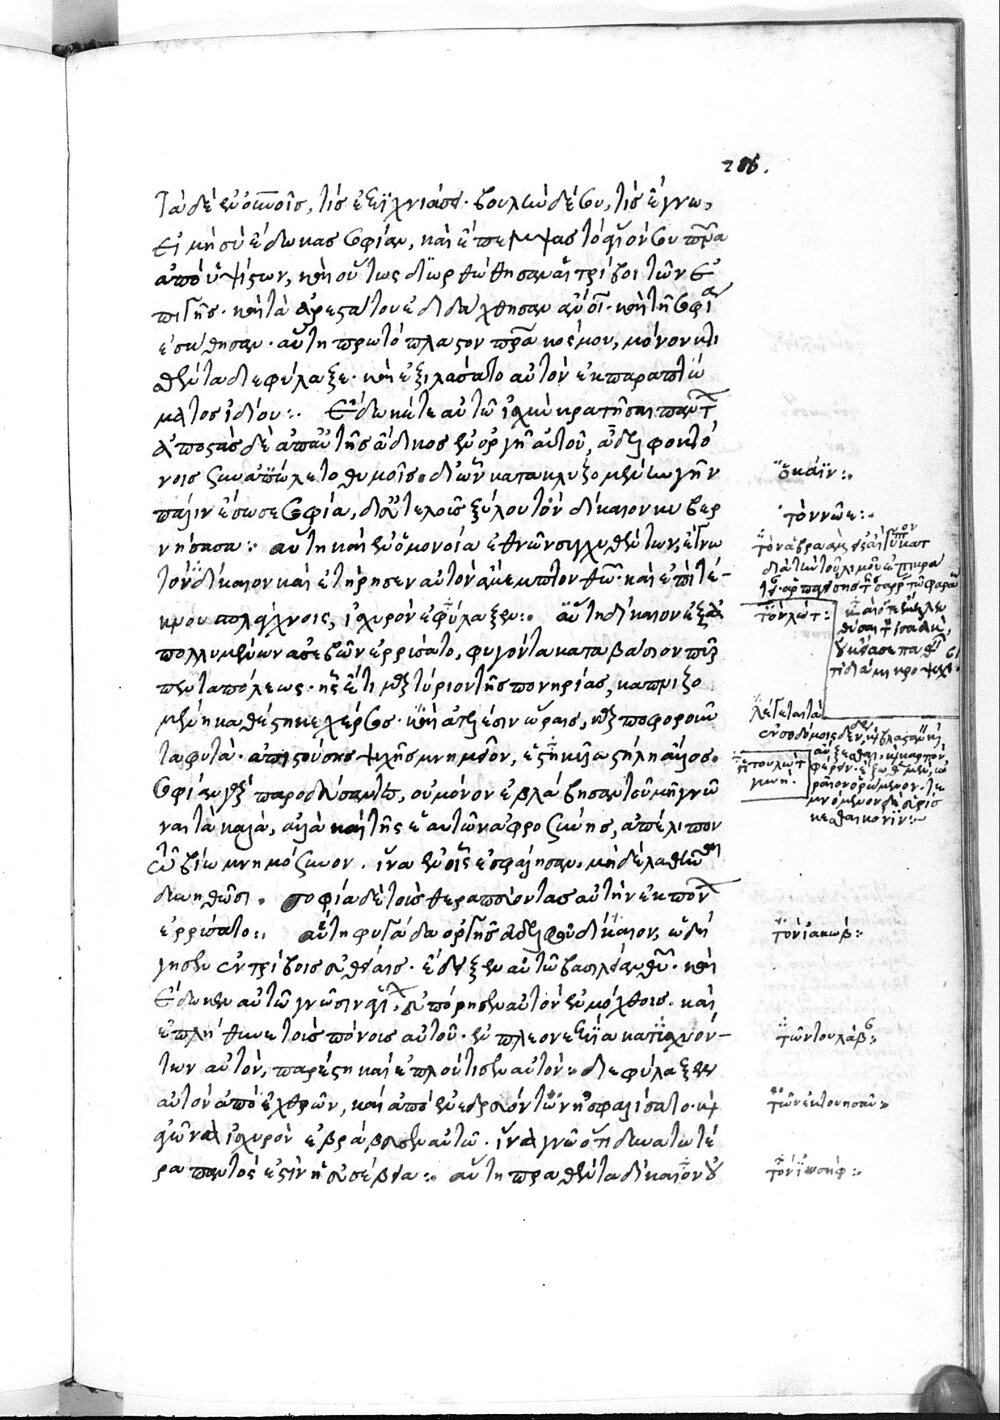 206.
τὰ δὲ ἐν οὐνοῖς, τίς ἐξιχνίασε· βουλὴν δέ σου, τίς ἔγνω,
εἰ μὴ σὺ ἔδωκας σοφίαν, καὶ ἔπεμψας τὸ ἅγιόν σου πνα
ἀπὸ ὑψίστων, καὶ οὕτως διωρθώθησαν αἱ τρίβοι τῶν ἐ
πὶ γῆς· καὶ τὰ ἀρεστά σου ἐδιδάχθησαν ανοι· καὶ τῇ σοφία
ἐσώθησαν· αὕτη πρωτόπλαστον πρα κόσμου, μόνον κτι
σθέντα διεφύλαξε· καὶ ἐξιλάσατο αὐτὸν ἐκ παραπτώ
ματος ἰδίου:· ἔδωκέ τε αὐτῶ ἰσχὺν κρατῆσαι πάντ
ἀποστὰς δὲ ἀπ' αὐτῆς ἄδικος ἐν ὀργῇ αὐτοῦ, ἀδελφοκτό
νοις συναπώλετο θυμοῖς· δι' ὧν κατακλυζομένην γῆν
πάλιν ἔσωσε σοφία, δι' εὐτελοῦς ξύλου τὸν δίκαιον κυβερ
νήσασα:· αὕτη καὶ ἐν ὁμονοία ἐθνῶν συγχυθέντων, ἔγνω
τὸν δίκαιον καὶ ἐτήρησεν αὐτὸν ἄμεμπτον θῶ· καὶ ἐπὶ τέ-
κνου σπλάγχνοις, ἰσχυρὸν ἐφύλαξεν:· αὕτη δίκαιον ἐξα
πολλυμένων ἀσεβῶν ἐρρύσατο, φυγόντα καταβάσιον πῦρ
πενταπόλεως· ἧς ἔτι μαρτύριον τῆς πονηρίας, καπνιζο
μένη καθέστηκε χέρσος· καὶ ἀτελέσιν ὥραις, καρποφοροῦν
τα φυτά· ἀπιστούσης ψυχῆς μνημεῖον, ἑστηκυῖα στήλη ἁλός·
σοφίαν γὰρ παροδεύσαντες, οὐ μόνον ἐβλάβησαν τοῦ μὴ γνῶ
ναι τὰ καλά, ἀλλὰ καὶ τῆς ἑαυτῶν ἀφροσύνης, ἀπέλιπον
τῶ βίω μνημόσυνον· ἵνα ἐν οἷς ἐσφάλησαν, μηδὲ λαθεῖν
δυνηθῶσι· σοφία δὲ τοὺς θεραπεύοντας αὐτὴν ἐκ πόνων
ἐρρύσατο:· αὕτη φυγάδα ὀργῆς ἀδελφοῦ δίκαιον, ὡδή
γησεν ἐν τρίβοις εὐθείαις· ἔδειξεν αὐτῶ βασιλείαν θῦ· καὶ
ἔδωκεν αὐτῶ γνῶσιν ἁγί· εὐπόρησεν αὐτὸν ἐν μόχθοις· καὶ
ἐπλήθυνε τοὺς πόνους αὐτοῦ· ἐν πλεονεξία κατισχυόν-
των αὐτόν, παρέστη καὶ ἐπλούτισεν αὐτόν· διεφύλαξεν
αὐτὸν ἀπὸ ἐχθρῶν, καὶ ἀπὸ ἐνεδρευόντων ἠσφαλίσατο· καὶ
ἀγῶνα ἰσχυρὸν ἐβράβευσεν αὐτῶ· ἵνα γνῶ ὅτι δυνατωτέ
ρα παντός ἐστιν ἡ εὐσέβεια:· αὕτη πραθέντα δίκαιον οὐ
ὁ κάϊν:·
τὸν νῶε:·
τὸν ἀβραάμ
τὸν λώτ:
λέγεται τὰ
τοῦ λὼτ
γυνή.
τὸν ἰακώβ:·
τῶν τοῦ λάβ:·
τῶν ἐκ τοῦ ησαῦ:·
τὸν ἰωσήφ:·